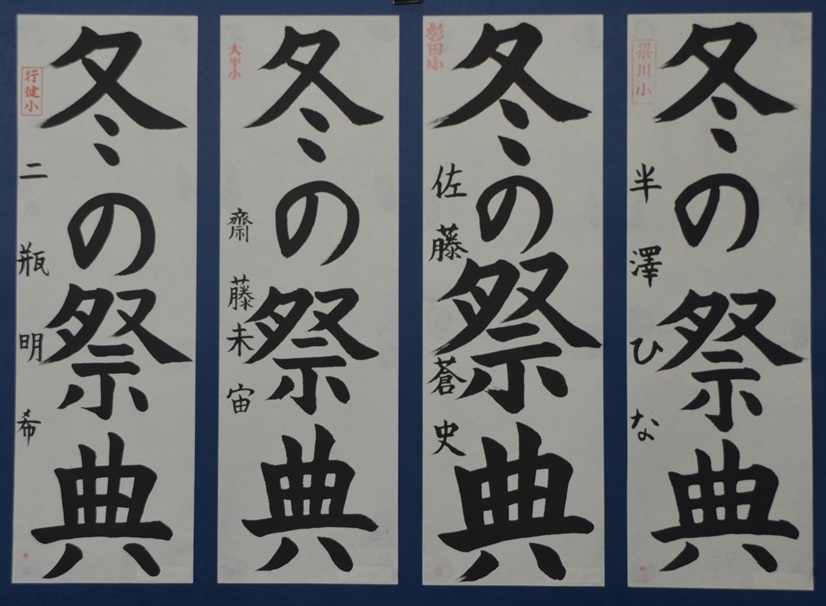 冬の祭典
梁川小
半澤ひな
冬の祭典
杉田小
佐藤蒼史
冬の祭典
大平小
齋藤未宙
冬の祭典
行健小
二瓶明希